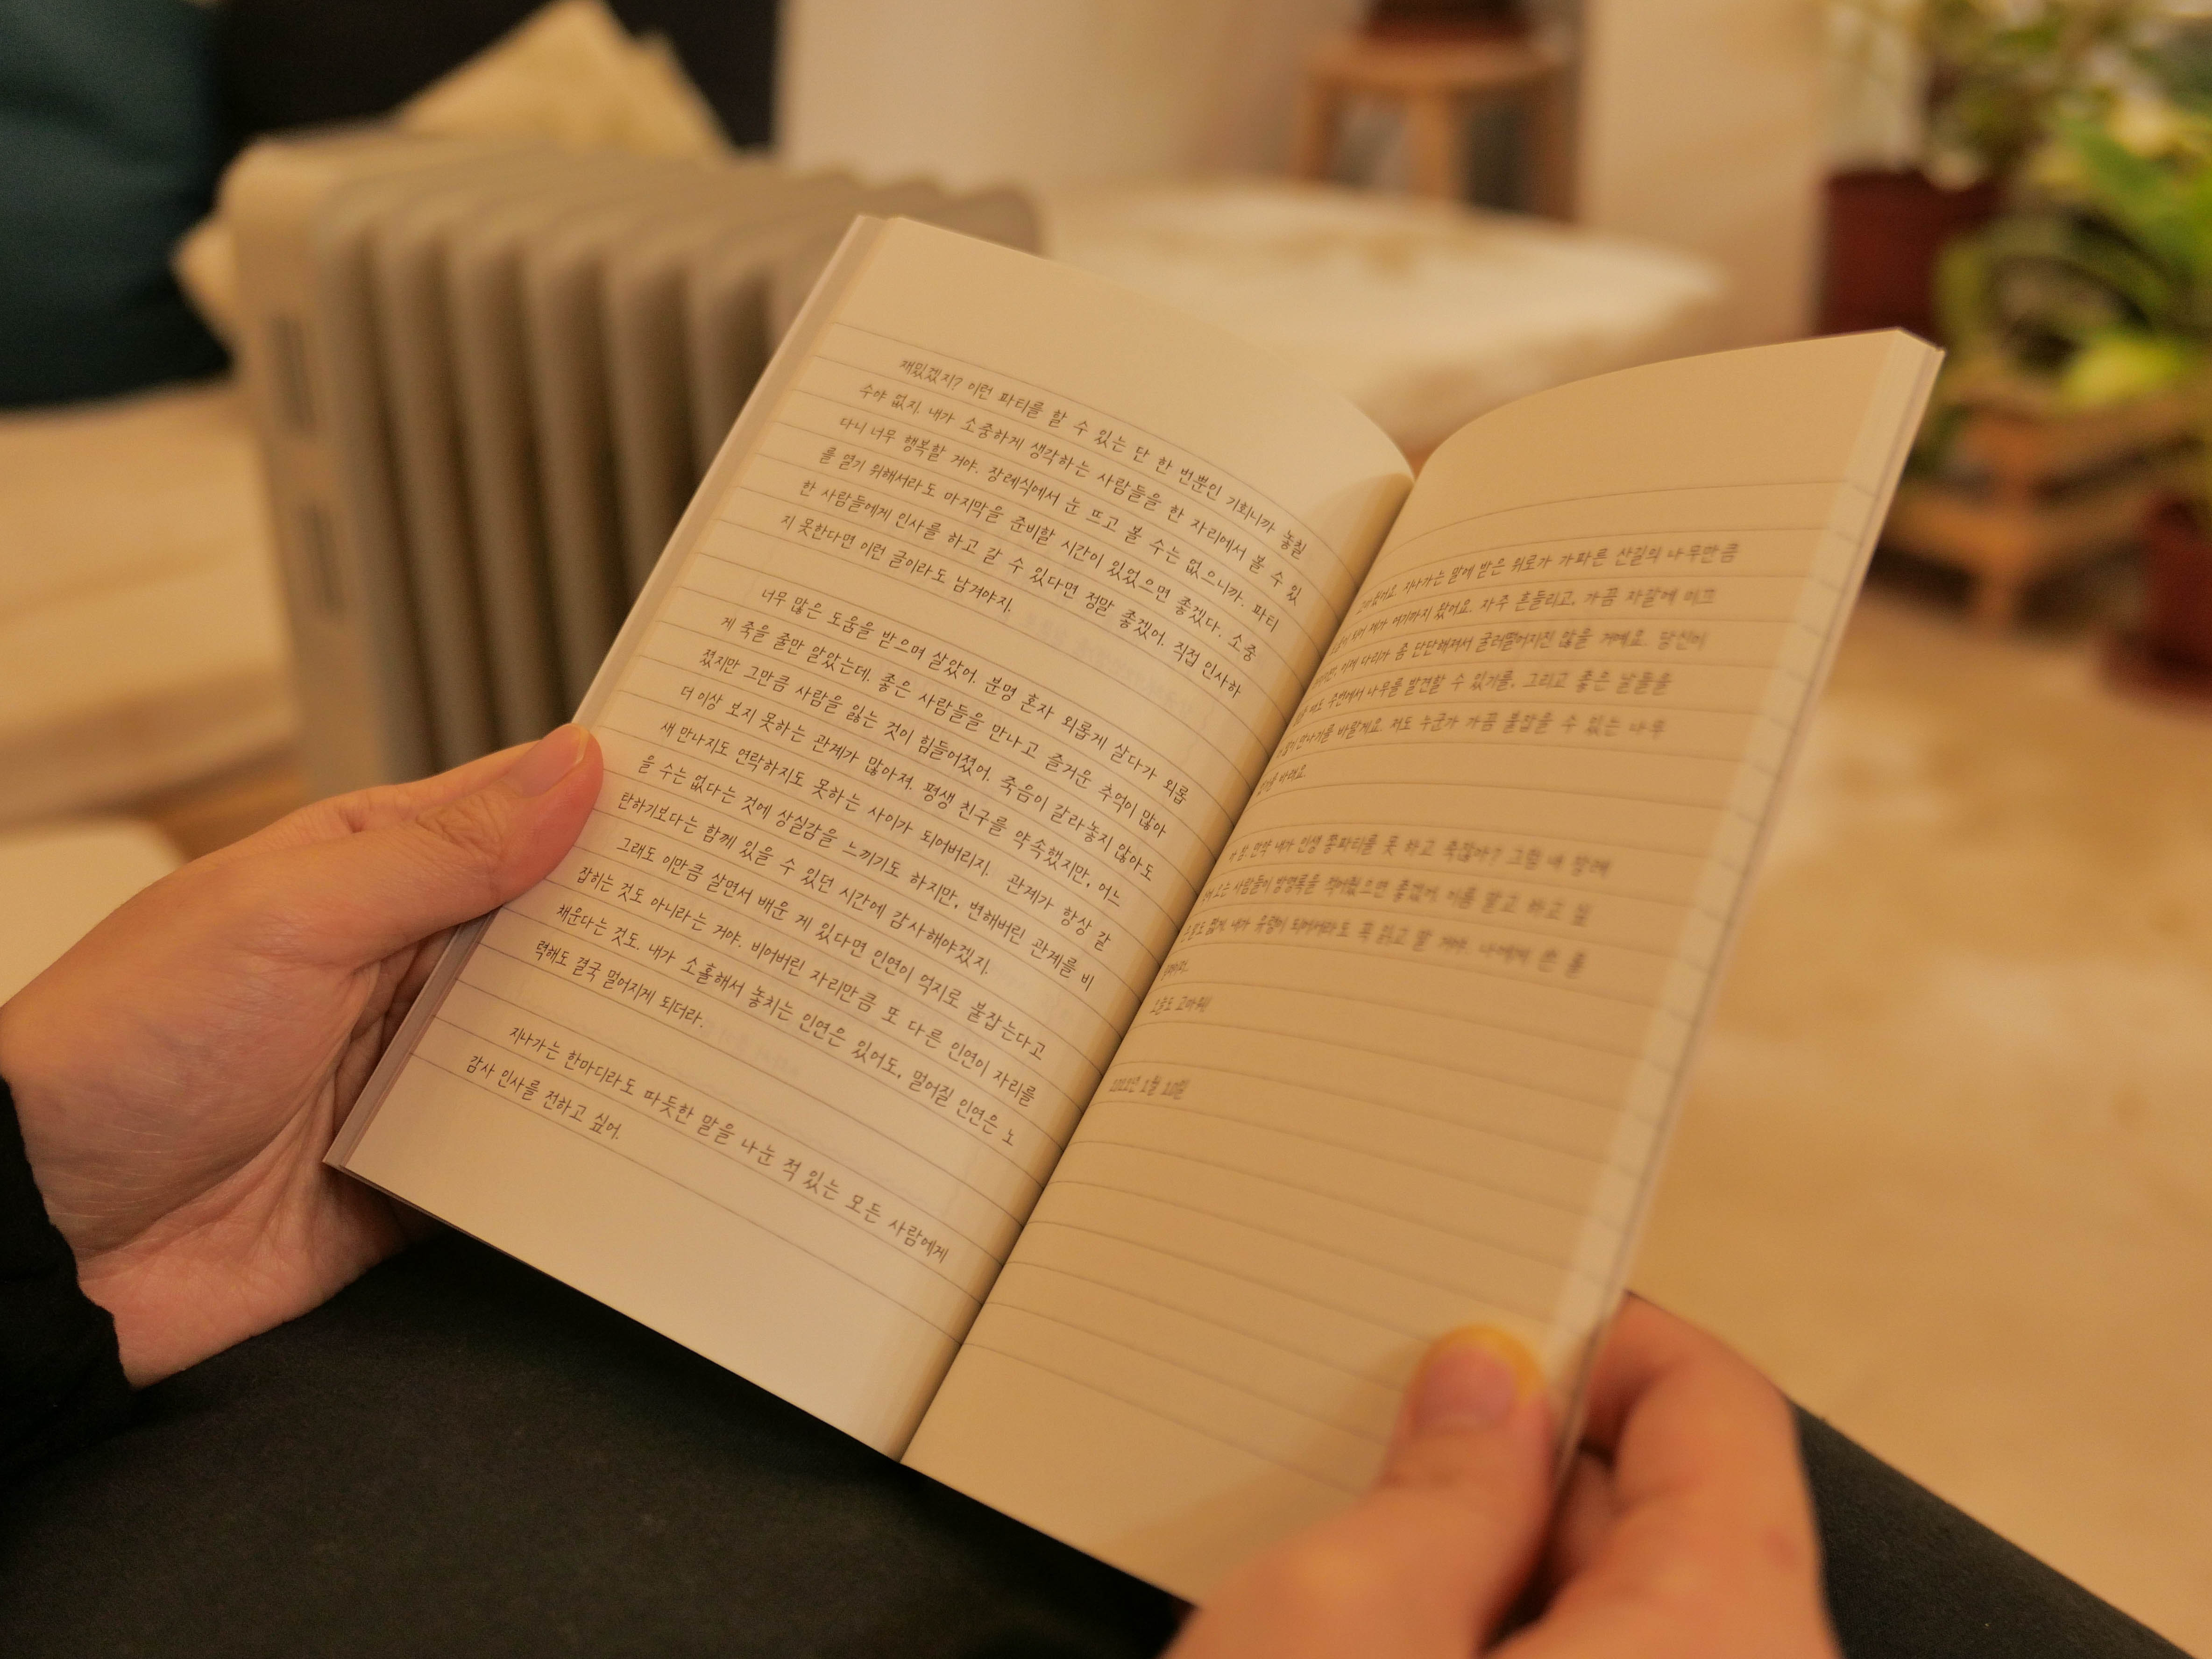 재밌겠지? 이런 파티를 할 수 있는 단 한 번뿐인 기회니까 놓칠
수야 없지. 내가 소중하게 생각하는 사람들을 한 자리에서 볼 수 있
다니 너무 행복할 거야. 장례식에서 눈 뜨고 볼 수는 없으니까. 파티
를 열기 위해서라도 마지막을 준비할 시간이 있었으면 좋겠다. 소중
한 사람들에게 인사를 하고 갈 수 있다면 정말 좋겠어. 직접 인사하
지 못한다면 이런 글이라도 남겨야지.
너무 많은 도움을 받으며 살았어. 분명 혼자 외롭게 살다가 외롭
게 죽을 줄만 알았는데. 좋은 사람들을 만나고 즐거운 추억이 많아
졌지만 그만큼 사람을 잃는 것이 힘들어졌어. 죽음이 갈라놓지 않아도
더 이상 보지 못하는 관계가 많아져. 평생 친구를 약속했지만, 어느
새 만나지도 연락하지도 못하는 사이가 되어버리지. 관계가 항상 같
을 수는 없다는 것에 상실감을 느끼기도 하지만, 변해버린 관계를 비
탄하기보다는 함께 있을 수 있던 시간에 감사해야겠지.
그래도 이만큼 살면서 배운 게 있다면 인연이 억지로 붙잡는다고
잡히는 것도 아니라는 거야. 비어버린 자리만큼 또 다른 인연이 자리를
채운다는 것도. 내가 소홀해서 놓치는 인연은 있어도, 멀어질 인연은 노
력해도 결국 멀어지게 되더라.
지나가는 한마디라도 따듯한 말을 나눈 적 있는 모든 사람에게
감사 인사를 전하고 싶어.
지나가는 말에 받은 위로가 가파른 산길의 나무만큼
여기까지 왔어요. 자주 흔들리고, 가끔 자갈에 미끄
이제 다리가 좀 단단해져서 굴러떨어지진 않을 거예요. 당신이
주변에서 나무를 발견할 수 있기를, 그리고 좋은 날들을
만나기를 바랄게요. 저도 누군가 가끔 붙잡을 수 있는 나무
바래요.
만약 내가 인생 쫑파티를 못 하고 죽잖아? 그럼 내
사람들이 방명록을 적어줬으면 좋겠어. 이름 말고 하고 싶
내가 유령이 되어서라도 꼭 읽고 갈 거야. 나에게 쓴
고마워!